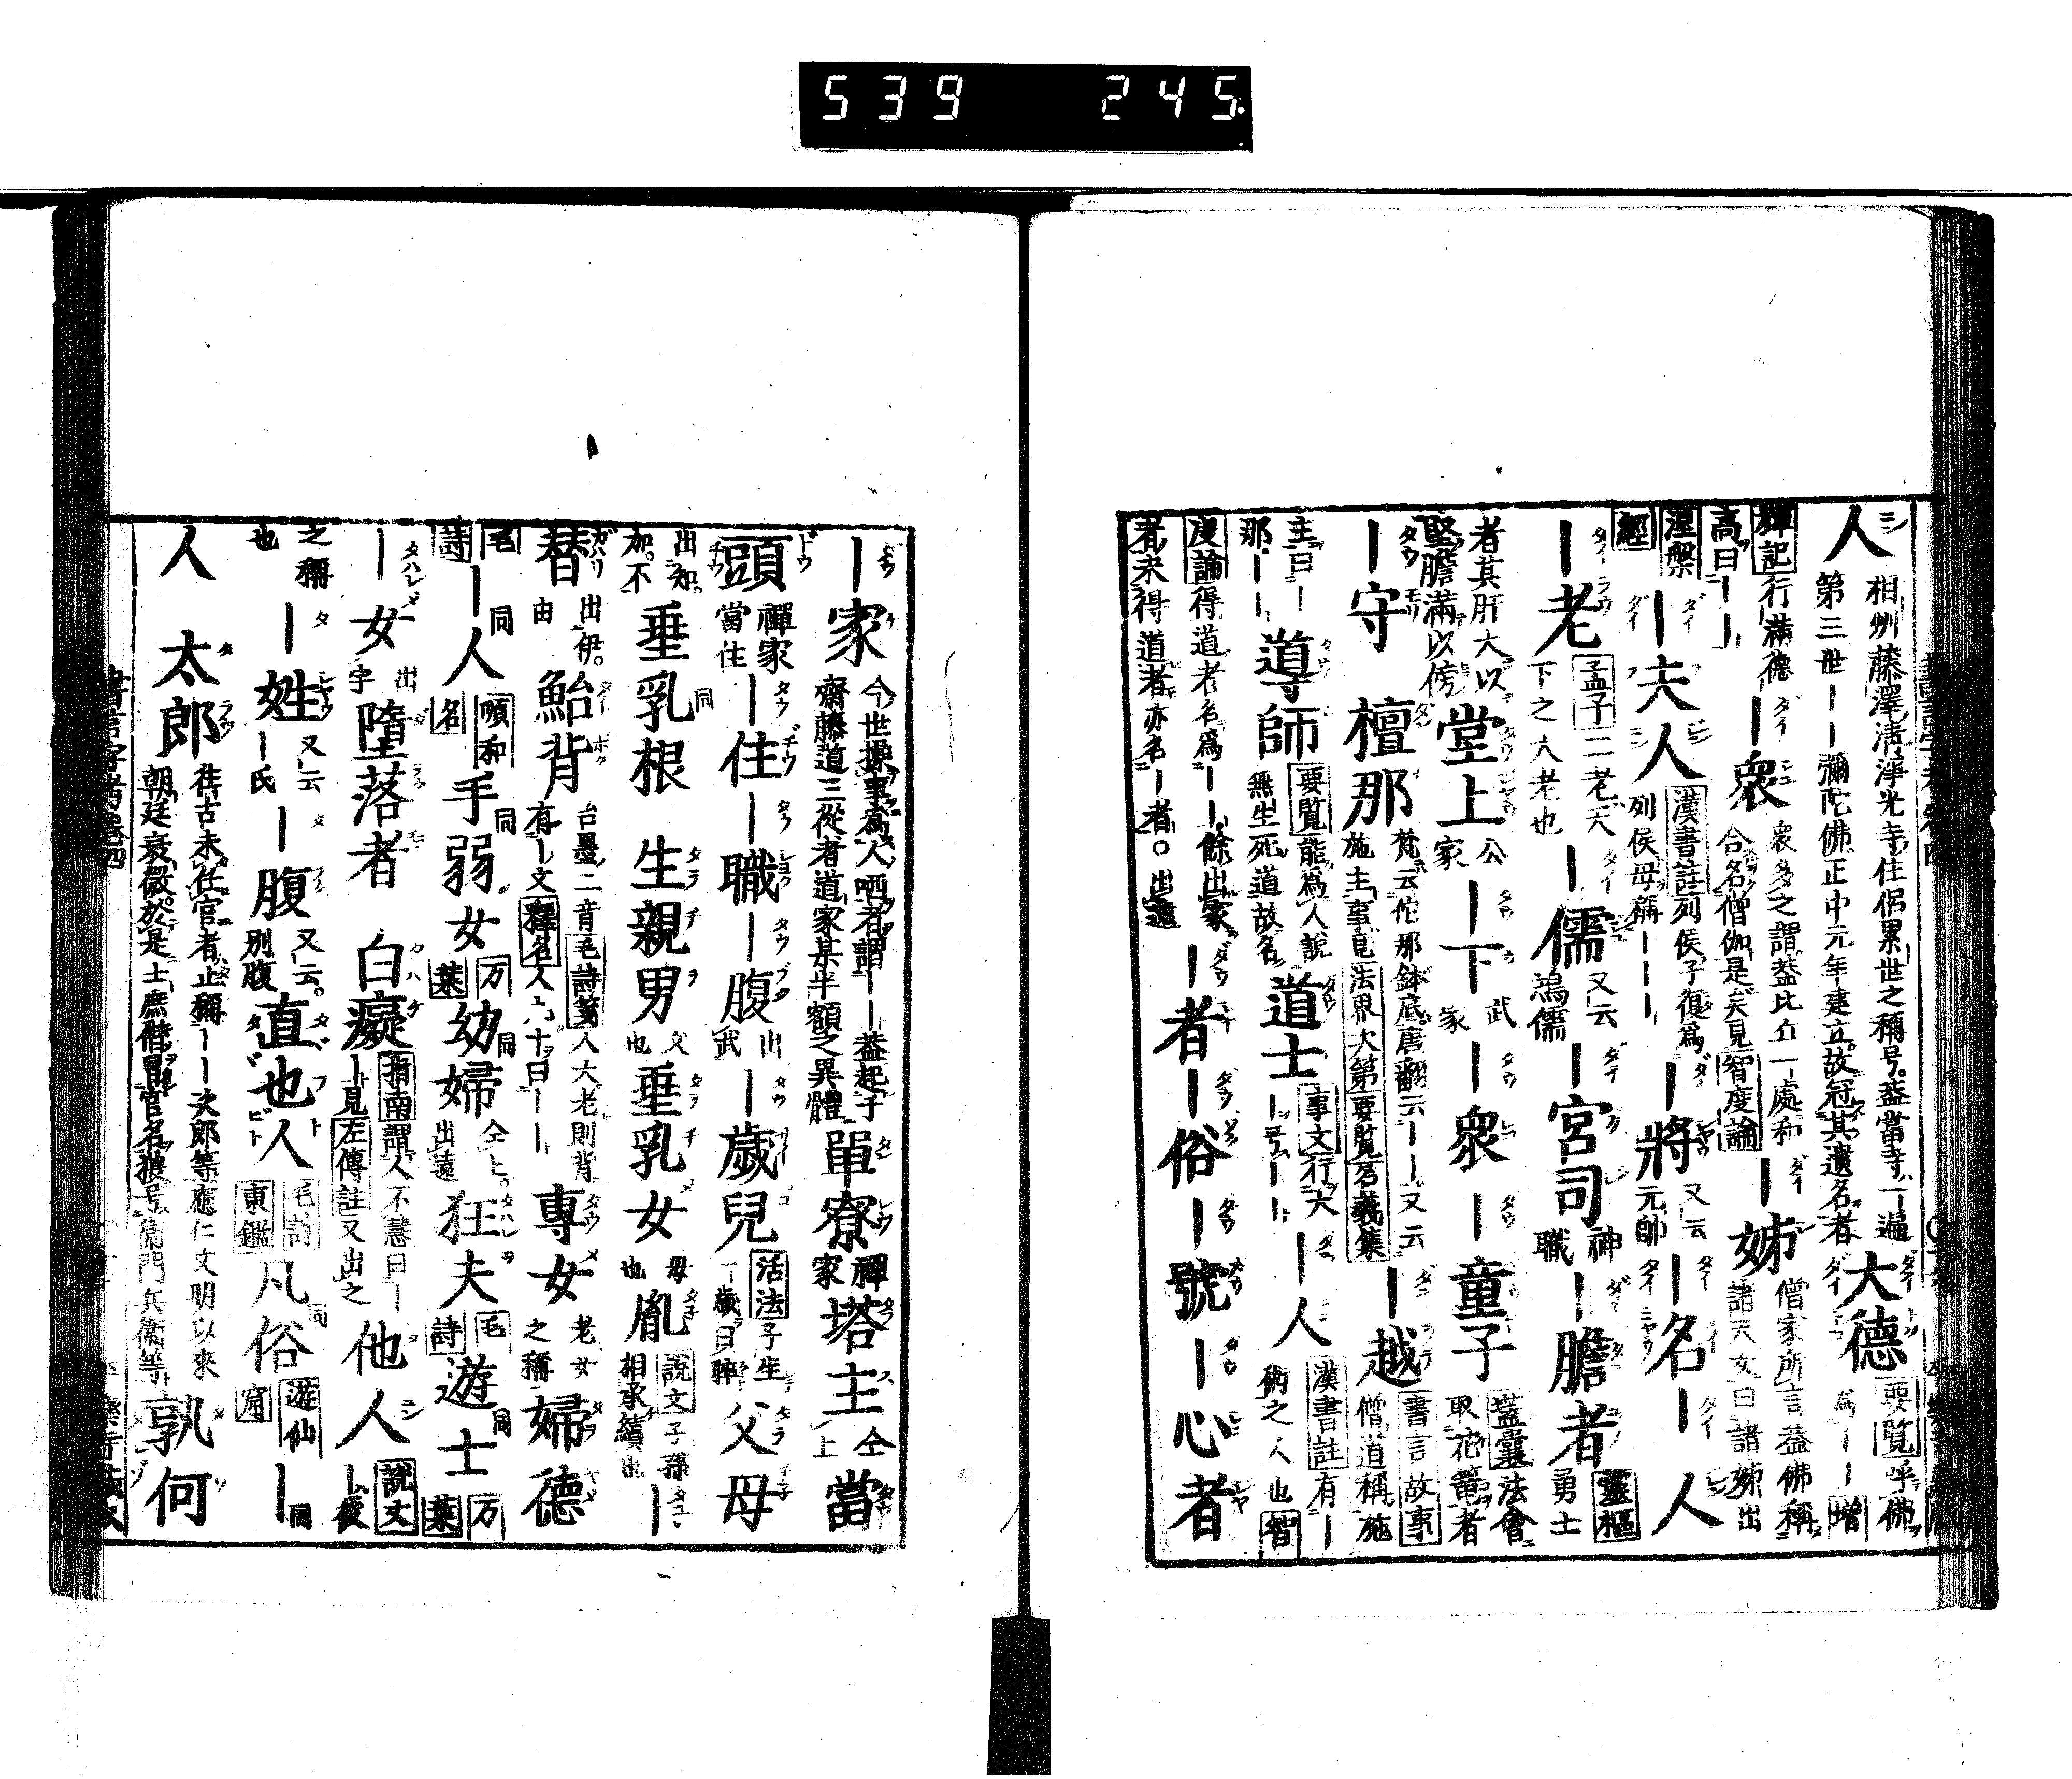 539 245
人 相州藤澤清淨光寺住侶累世之稱号。蓋當寺一遍
第三世｜｜彌陀佛正中元年建立。故冠其遺名者 大德 要覧呼佛
爲｜｜増
輝記行滿德
高曰｜｜ ｜衆 衆多之謂。蓋比丘一處和
合名僧伽是矣見智度論 ｜姊 僧家所言蓋佛稱
諸天女曰諸姊出
涅槃
經 ｜夫人 漢書註列侯子復爲
列侯母稱｜｜｜ ｜將 又云
元帥 ｜名｜人
｜老 孟子二老天
下之大老也 ｜儒 又云
鴻儒 ｜宮司 神
職 ｜膽者 靈樞
勇士
者其肝大以
堅膽滿以傍 堂上 公
家 ｜下 武
家 ｜衆 ｜童子 壒囊法會
取花篭者
｜守 檀那 梵云佗那鉢底唐翻云｜｜又云
施主事見法界次第要覧名義集 ｜越 書言故事
僧道稱施
主曰｜
那｜｜ 導師 要覧能爲人說
無生死道故名 道士 事文行大
｜号｜｜ ｜人 漢書註有｜
術之人也智
度論得道者名爲｜｜餘出家
者未得道者亦名｜者。出遠 ｜者｜俗｜號｜心者
｜家 今世操事爲人哂者謂｜｜蓋起于
齋藤道三從者道家某半額之異體 單寮 禪
家 塔主 仝
上 當
頭 禪家
當住 ｜住｜職｜腹 出
武 ｜歲兒 活法子生
一歲曰晬 父母
出知。
加。不 垂乳根 同 生親男 父
也 垂乳女 母
也 胤 說文子孫
相承續也 ｜
替 出伊。
由 鮐背 台墨二音毛詩箋人大老則背
有｜文釋名人六十曰｜｜ 專女 老女
之稱 婦德
毛
詩 ｜人 同 順和
名 手弱女 同 万
葉 幼婦 同 仝上。
出遠 狂夫 毛
詩 遊士 同 万
葉
｜女 出
宇 墮落者 白癡 指南謂人不慧曰｜
｜見左傳註又出之 他人 說文
｜彼
之稱
也 ｜姓 又云
｜氏 ｜腹 又云。
別腹 直也人 毛詩
東鑑 凡俗 同 遊仙
窟 ｜ 同
人 太郎 往古未任官者止稱｜｜次郎等應仁文明以來
朝廷衰微。於是士庶僭冒官名猥号衞門兵衞等 孰何
書言字考卷四